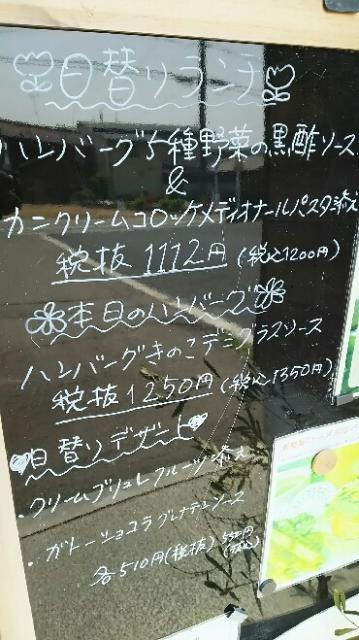 日替りランチ
ハンバーグ5種野菜の黒酢ソース
&
カニクリームコロッケメディオナールパスタ添え
税抜1112円(税込1200円)
本日のハンバーグ
ハンバーグきのこデミグラスソース
税抜1250円(税込1350円)
日替りデザート
・クリームブリュレフルーツ添え
・ガトーショコラグレナデンソース
各510円(税抜)